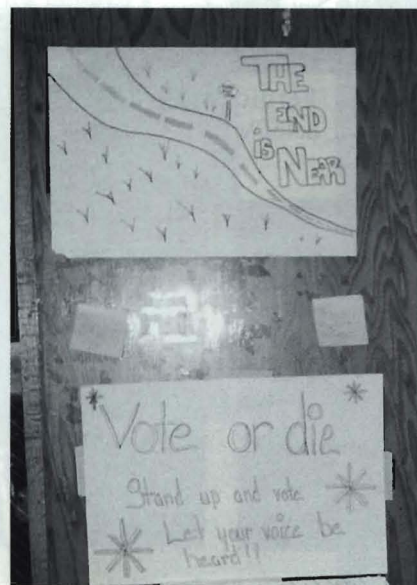 THE
END
iS
NEAR
Vote or die
Stand up and vote
Let your voice be
heard!!